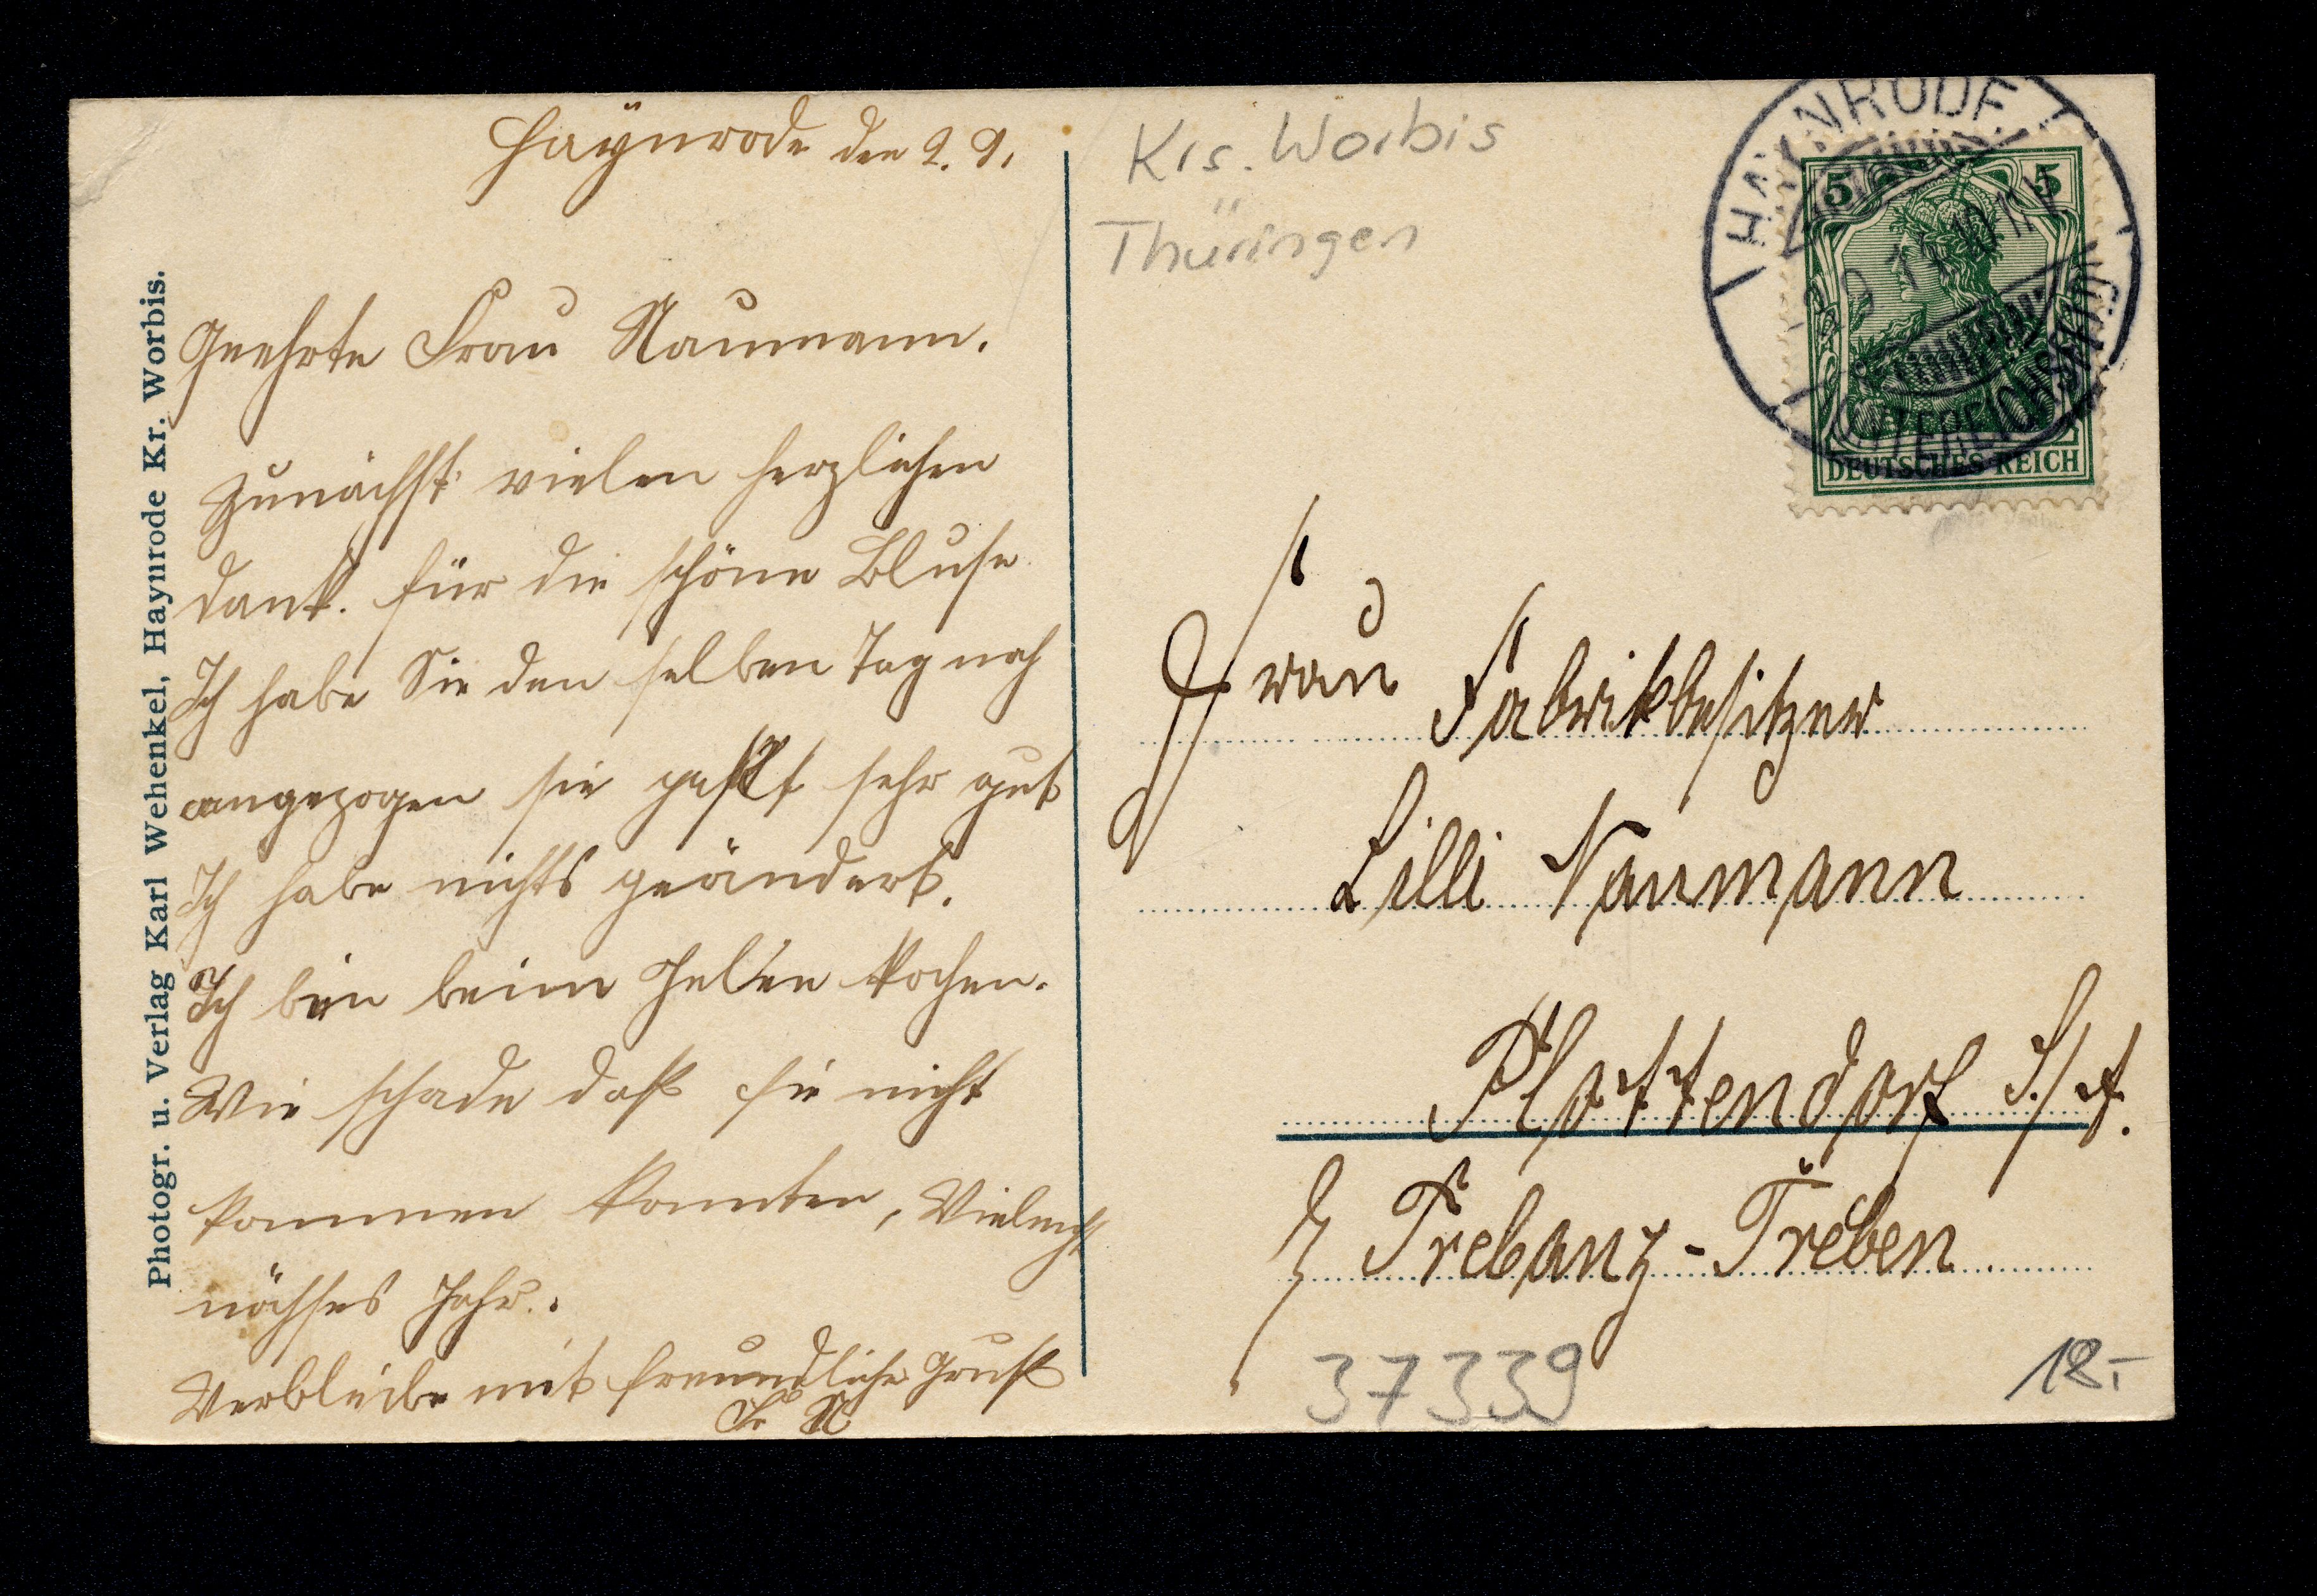 Haynrode den 2. 9.
Geehrte Frau Naumann.
Zunächst vielen herzlichen
Dank. für die schöne Bluse
Ich habe Sie den selben Tag noch
angezogen sie paßt sehr gut
Ich habe nichts geändert.
Ich bin beim kochen.
Wie schade daß sie nicht
kommen konnten, Vieleicht
nächses Jahr.
Verbleibe mit freundliche Gruß
Fr N
Photogr. u. Verlag Karl Wehenkel, Haynrode Kr. Worbis.
Krs. Worbis
Thüringen
HAYNRODE
5 5
DEUTSCHES REICH
Frau Fabrikbesitzer
Lilli Naumann
Plottendorf S./A.
Trebanz-Treben
37339
12.-